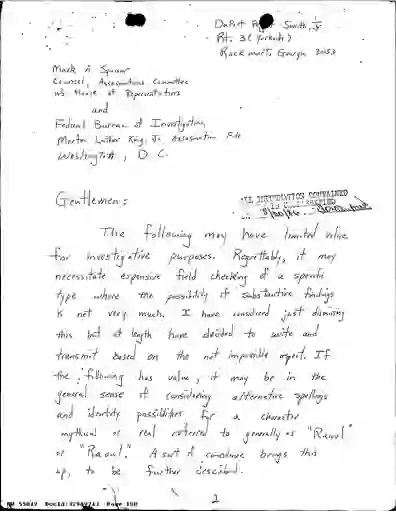 Rt. 3 (Yorkville)
Rockmart, Georgia
Mark
Counsel, Assassinations Committee
US House of Representatives
and
Federal Bureau of Investigation,
Martin Luther King, Jr. Assassination File
Washington, D C.
Gentlemen:
ALL INFORMATION CONTAINED
The following may have limited value
for investigative purposes. Regrettably, it may
necessitate expensive field checking of a specific
type where the possibility of substantive findings
is not very much. I have considered just dismissing
this but at length have decided to write and
transmit based on the not impossible aspect. If
the following has value, it may be in the
general sense of considering alternative spellings
and identity possibilities for a character
mythical or real referred to generally as "Raoul"
or "Raoul." A sort of coincidence brings this
up, to be further described.
1